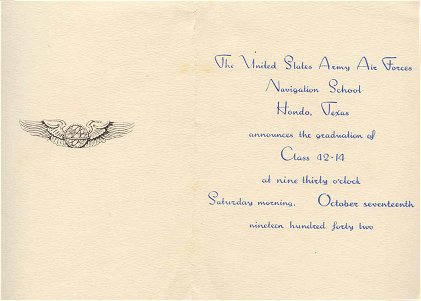 The United States Army Air Forces
Navigation School
Hondo, Texas
announces the graduation of
Class 42-14
at nine thirty o'clock
Saturday morning, October seventeenth
nineteen hundred forty two